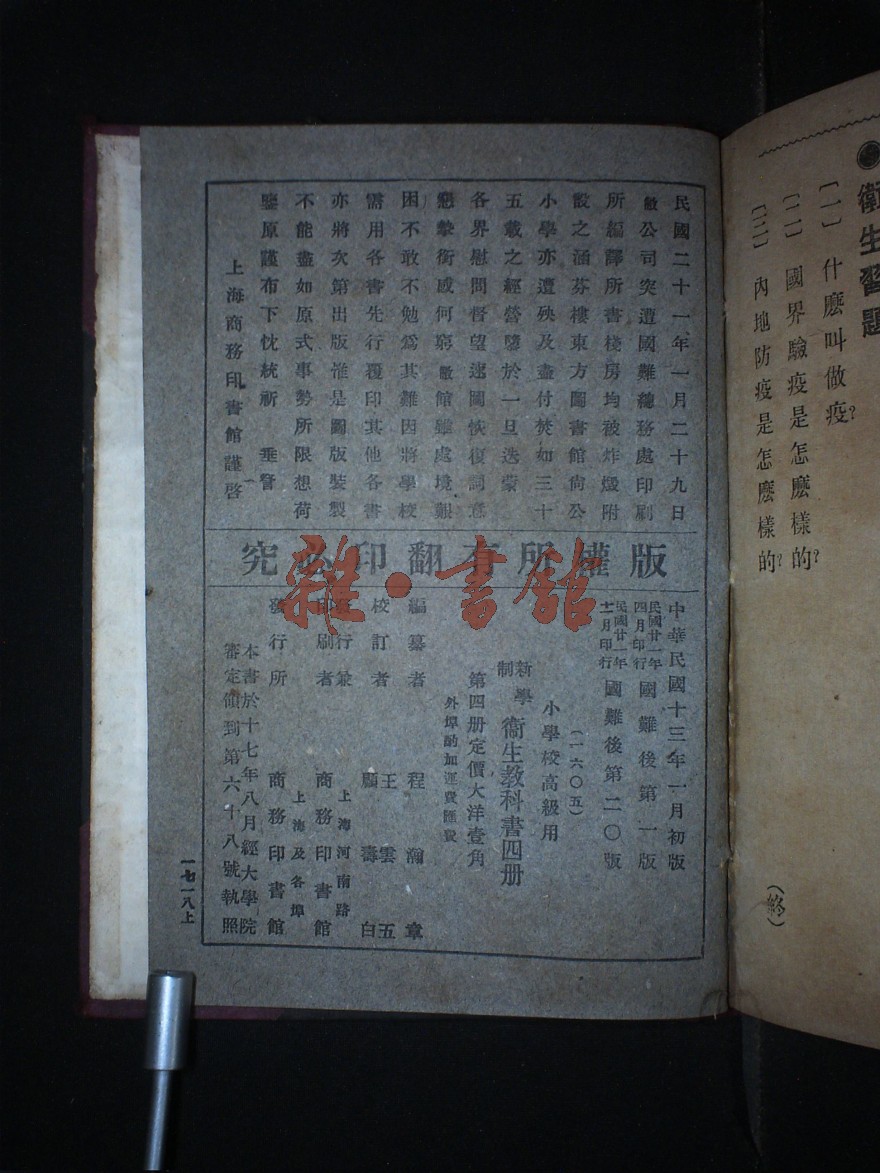 ●衛生習題
〔一〕什麽叫做疫?
〔二〕國界驗疫是怎麽樣的?
〔三〕內地防疫是怎麽樣的?
(終)
民國二十一年一月二十九日
敝公司突遭國難總務處印刷
所編譯所書棧房均被炸燬附
設之涵芬樓東方圖書館尚公
小學亦遭殃及盡付焚如三十
五載之經營隳於一旦迭蒙
各界慰問督望速圖恢復詞意
懇摯銜感何窮敝館雖處境艱
困不敢不勉爲其難因將學校
需用各書先行覆印其他各書
亦將次第出版惟是圖版裝製
不能盡如原式事勢所限想荷
鑒原謹布下忱統祈 垂詧
上海商務印書館謹啓
版權所有翻印必究
雜·書館
中華民國十三年一月初版
民國廿一年四月印行 國難後第一版
民國廿一年十一月印行 國難後第二〇版
(一六〇五)
小學校高級用
新學制 衞生教科書四册
第四册定價大洋壹角
外埠酌加運費匯費
編纂者 程瀚章
校訂者 王雲五 顧壽白
發行兼印刷者 上海河南路 商務印書館
發行所 上海及各埠 商務印書館
本書於十七年八月經大學院
審定領到第六十八號執照
一七一八上